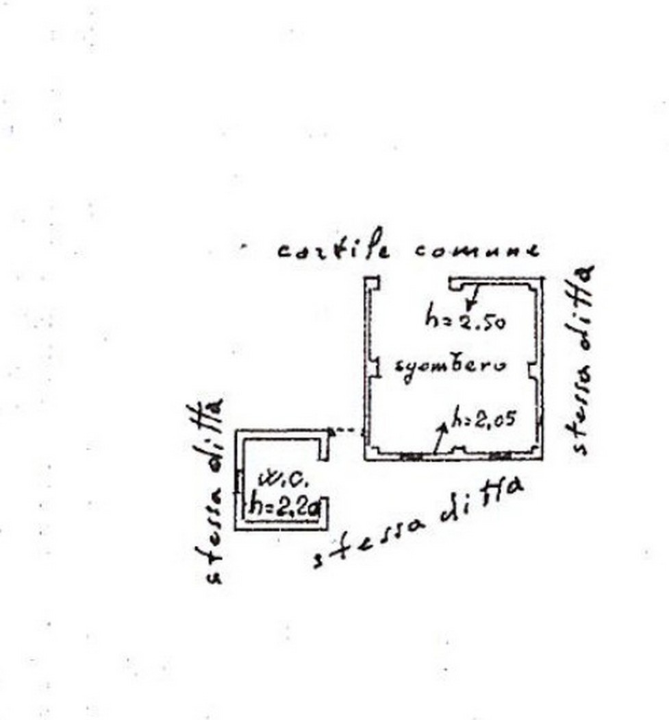 cortile comune
h=2.50
sgombero
h=2,05
stessa ditta
stessa ditta
w.c.
h=2,20
stessa ditta